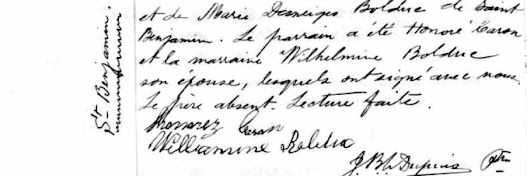 St. Benjamin.
et de Marie Desneiges Bolduc de Saint
Benjamin. Le parrain a été Honoré Caron
et la marraine Wilhelmine Bolduc
son épouse, lesquels ont signé avec nous.
Le père absent. Lecture faite.
Caron
J B L Dupuis Ptre